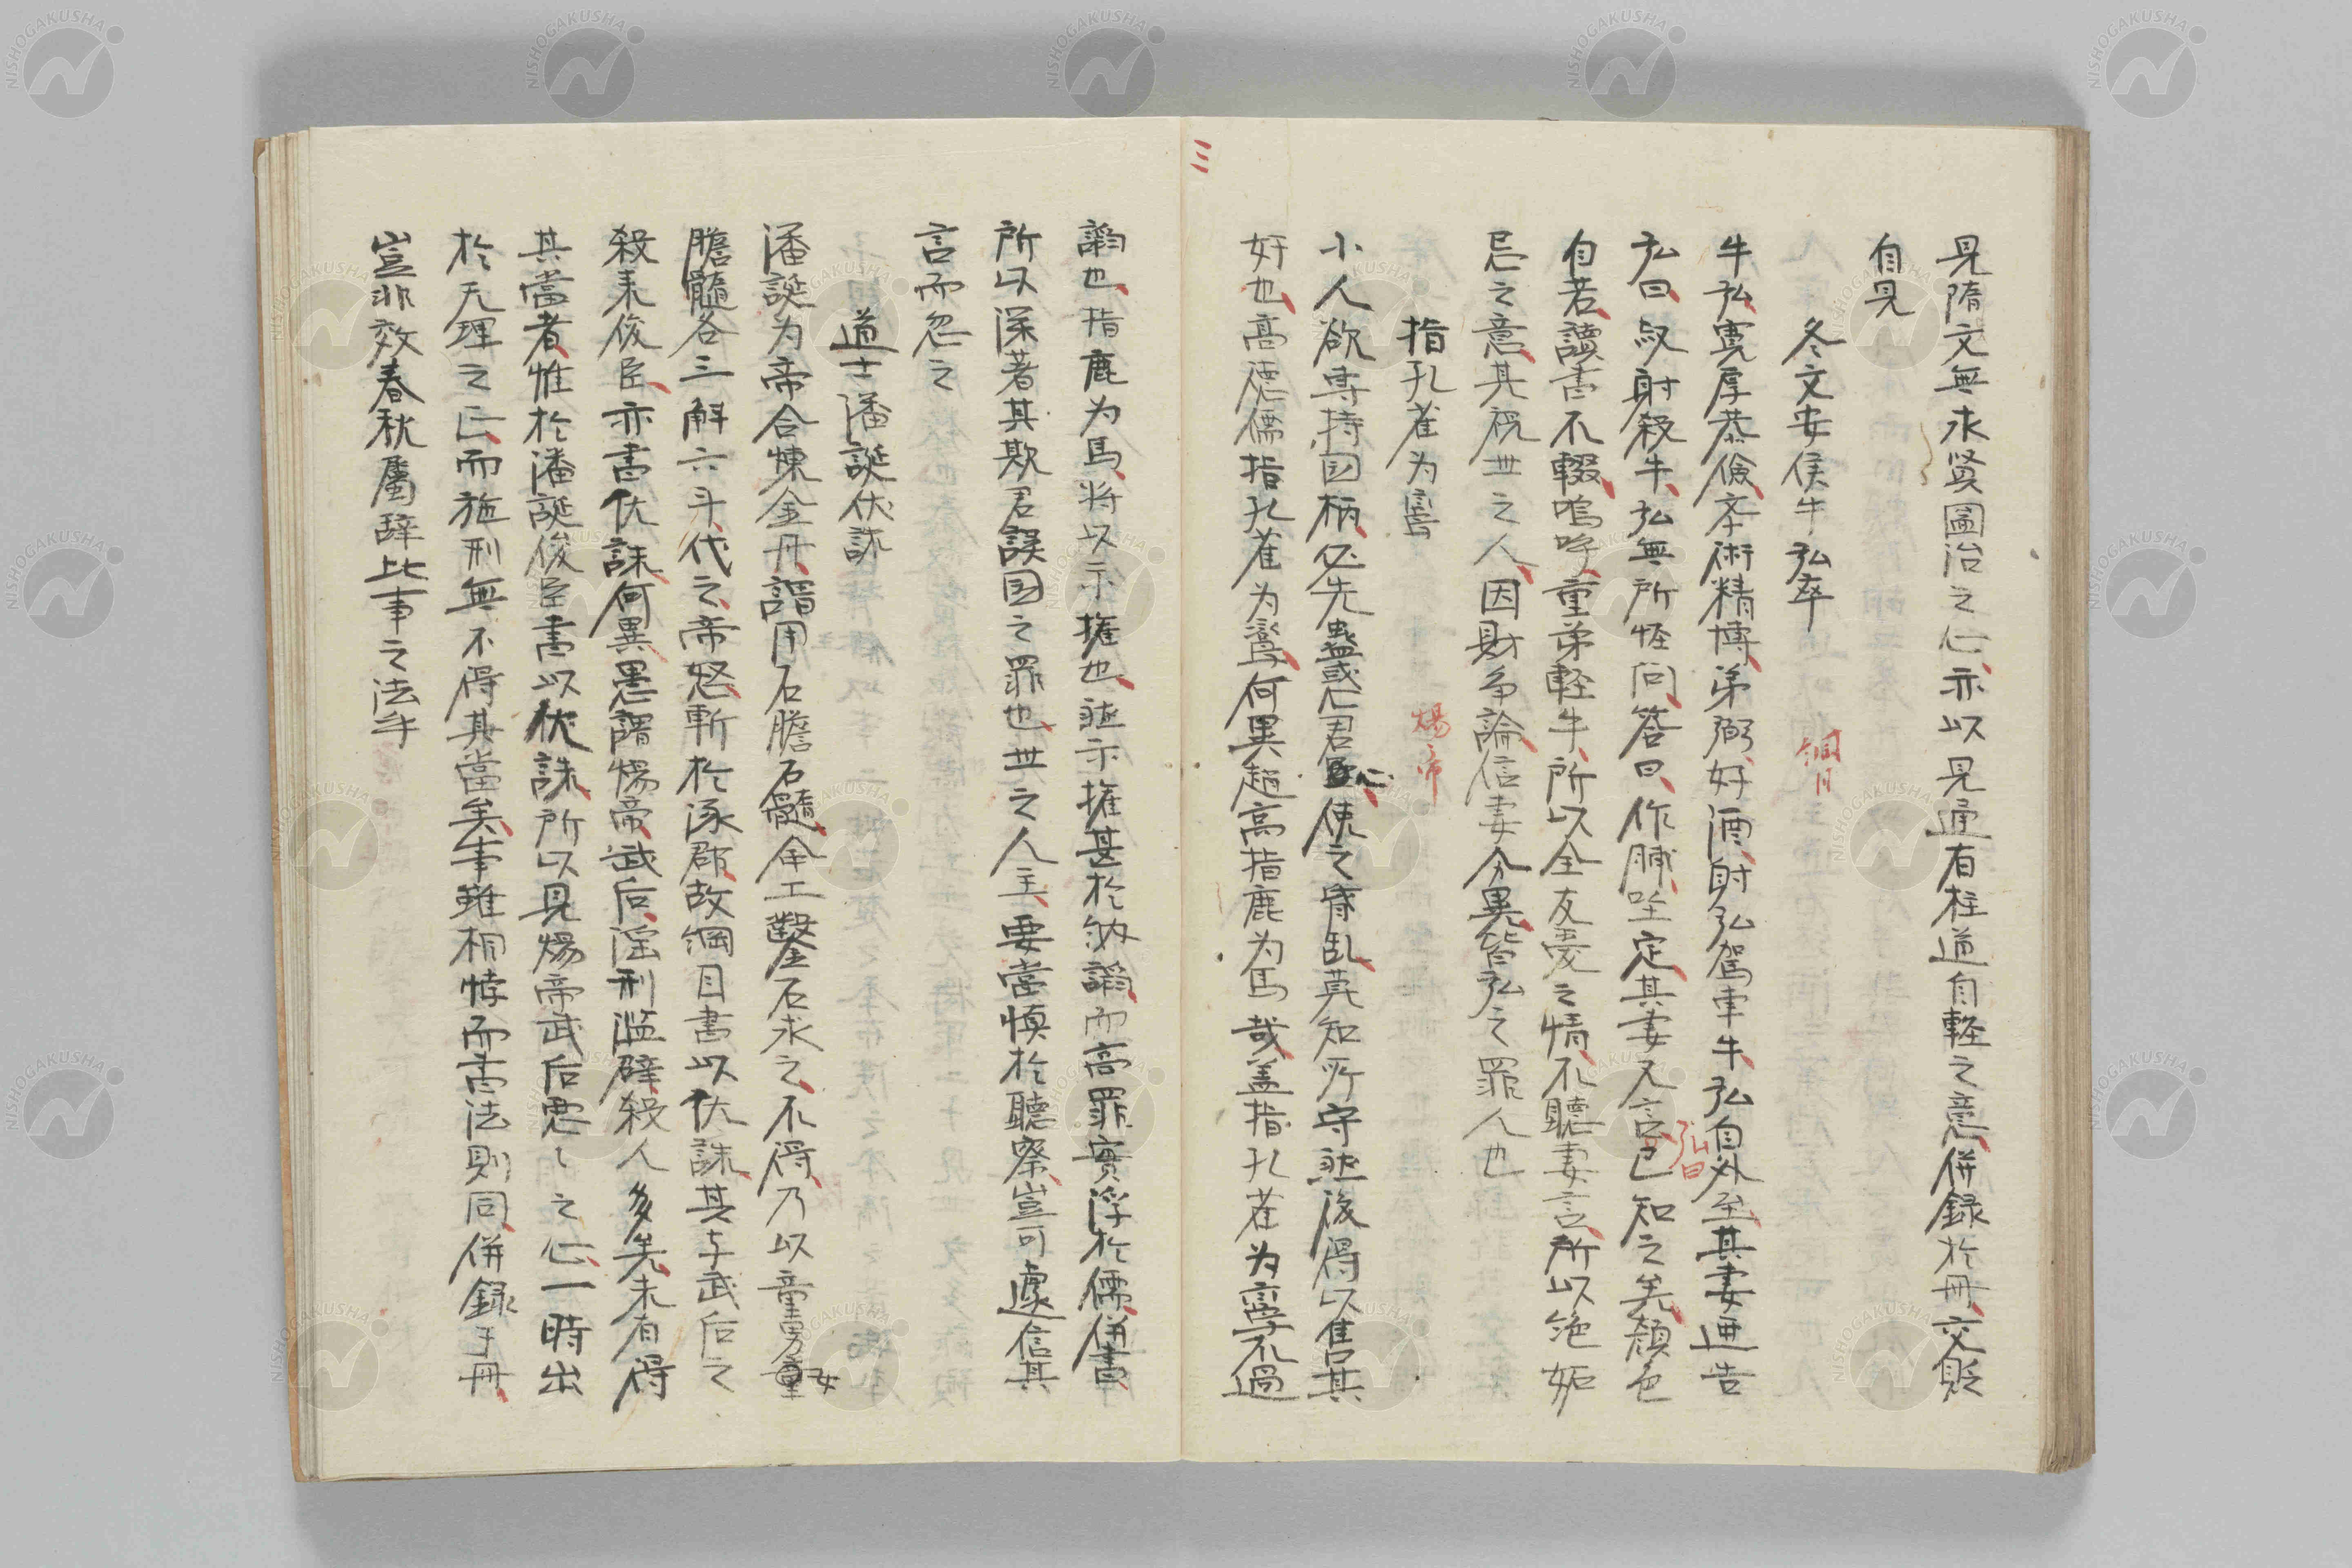 三
見隋文無求賢圖治之心亦以見通有枉道自軽之意併録於冊交貶
自見
冬文安侯牛弘卒
綱目
牛弘寛厚恭儉学術精博弟弼好酒射弘駕車牛弘自外至其妻迎告
弘曰叔射殺牛弘無所怪問答曰作脯坐定其妻又言已知之矣顔色
弘曰
自若讀書不輟嗚呼重弟軽牛所以全友愛之情不聽妻言所以絶妬
忌之意其視世之人因財争論信妻分異皆弘之罪人也
指孔雀为鸞
煬帝
小人欲専持国柄必先蠱惑君心使之昏乱莫知所守然後得以售其
奸也高徳儒指孔雀为鸞何異趙高指鹿为馬哉盖指孔雀为鸞不過
謟也指鹿为馬将以示権也然示権甚於納謟而高罪實浮於儒併書
所以深著其欺君誤国之罪也世之人主要當慎於聽察豈可遽信其
言而忽之
道士潘誕伏誅
潘誕为帝合煉金丹謂用石膽石髓命工鑿石求之不得乃以童男童女
膽髓各三斛六斗代之帝怒斬於涿郡故綱目書以伏誅其与武后之
殺来俊臣亦書伏誅何異愚謂煬帝武后淫刑濫辟殺人多矣未有得
其當者惟於潘誕俊臣書以伏誅所以見煬帝武后悪〻之心一時出
於天理之正而施刑無不得其當矣事雖相悖而書法則同併録于冊
豈非效春秋屬辞比事之法乎